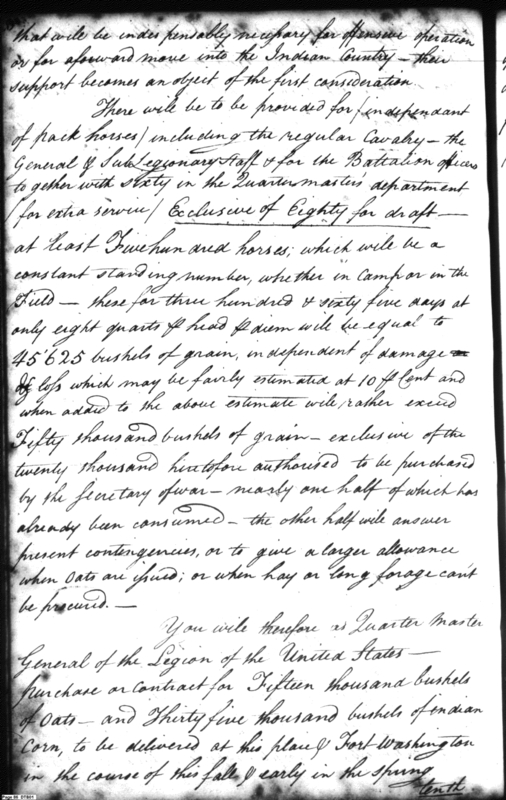 that will be indespensably necessary for offensive operation
or for a forward move into the Indian Country – their
support becomes an object of the first consideration
There will be to be provided for / independant
of pack horses / including the regular Cavalry – the
General & Sub Legionary Staff & for the Battalion officers
to gether with Sixty in the Quartermasters department
/ for extra service / Exclusive of Eighty for draft —
at least Five hundred horses; which will be a
constant standing number, whether in Camp or in the
Field – these for three hundred & sixty five days at
only eight quarts ⅌ head ⅌ diem will be equal to
45'625 bushels of grain, independent of damage
& loss which may be fairly estimated at 10 ⅌ Cent and
when added to the above estimate will rather exceed
Fifty thousand bushels of grain – exclusive of the
twenty thousand heretofore authorised to be purchased
by the Secretary of war – nearly one half of which has
already been consumed – the other half will answer
present contengencies, or to give a larger allowance
when Oats are issued; or when hay or long forage can't
be procured. —
You will therefore as Quarter Master
General of the Legion of the United States —
purchase or contract for Fifteen thousand bushels
of Oats – and Thirty five thousand bushels of indian
Corn, to be delivered at this place & Fort Washington
in the course of this fall & early in the spring
tenth